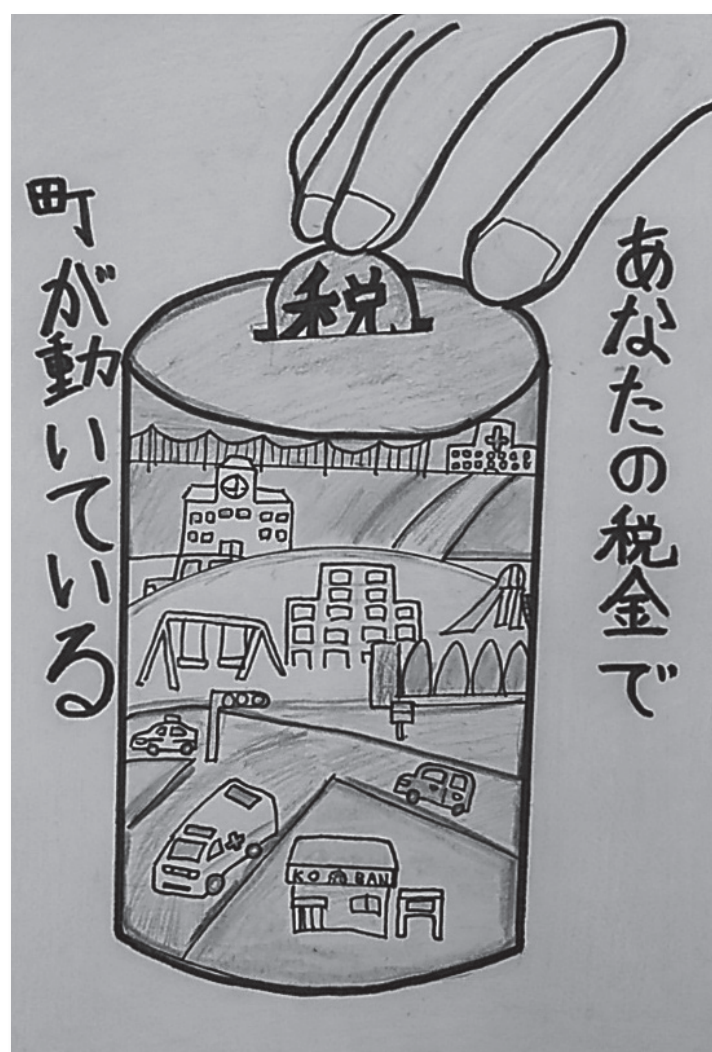 あなたの税金で
町が動いている
税
KOBAN